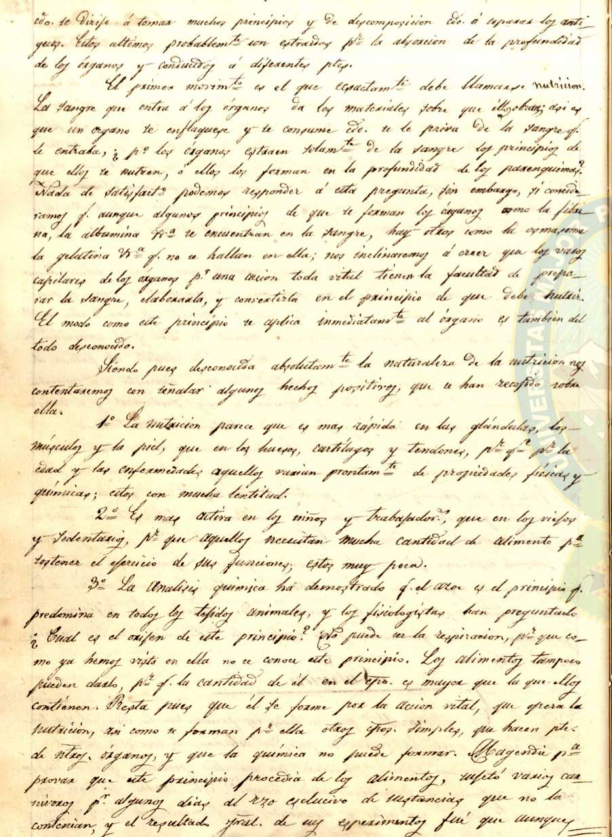 cio. se dirise á tomar muchos principios y de descomposicion cio. á separar los anti-
guos. Estos ultimos probablemte son estraidos pr la absorcion de la profundidad
de los órganos y conducidos á diferentes ptes.
El primer movimto es el que ecsactamte debe llamarse nutricion.
La sangre que entra á los órganos da los materiales sobre que ; asi es
que un organo se enflaquese y se consume cdo. se le priva de la sangre q.
le entraba, ¿ po los órganos estraen solamte de la sangre los principios de
que ellos se nutren, ó ellos los forman en la profundidad de los parenquimas?
Nada de satisfacto podemos responder á esta pregunta, sin embargo, si conside-
ramos q. aunque algunos principios de que se forman los órganos como la fibri-
na, la albumina &a se encuentran en la sangre, hay otros como la osmazoma
la gelatina &a q. no se hallan en ella; nos inclinaremos á creer que los vasos
capilares de los organos pr una accion toda vital tienen la facultad de prepa-
rar la sangre, elaborarla, y convertirla en el principio de que debe nutrir.
El modo como este principio se aplica inmediatamte al órgano es tambien del
todo desconocido.
Siendo pues desconocida absolutamte la naturaleza de la nutricion nos
contentaremos con señalar algunos hechos positivos, que se han recojido sobre
ella.
1o La nutricion parece que es mas rápida en las glándulas, los
músculos y la piel, que en los huesos, cartilagos y tendones, pr qe pr la
edad y las enfermedades aquellos varian prontamte de propiedades fisicas y
quimicas; estos con mucha lentitud.
2o Es mas activa en los niños y trabajadors, que en los viejos
y sedentarios, pr que aquellos necesitan mucha cantidad de alimento pa
sostener el ejercicio de sus funciones; estos muy poca.
3o La Analisis quimica há demostrado q. el azoe es el principio q.
predomina en todos los tejidos animales, y los fisiologistas han preguntado
¿Cual es el orijen de este principio? No puede ser la respiracion, pr que co-
mo ya hemos visto en ella no se conoce este principio. Los alimentos tampoco
pueden darlo, pr q. la cantidad de él en el cpo. es mayor que la que ellos
contienen. Resta pues que él se forme por la accion vital, que opera la
nutricion, asi como se forman pr ella otros ppos. simples, que hacen pte.
de ntros. organos, y que la quimica no puede formar. Magendie pa
provar que este principio procedia de los alimentos, sujetó varios car-
nivoros pr algunos dias al uzo esclusivo de sustancias que no la
contenian, y el resultado gral. de sus esperimentos fué que aunque